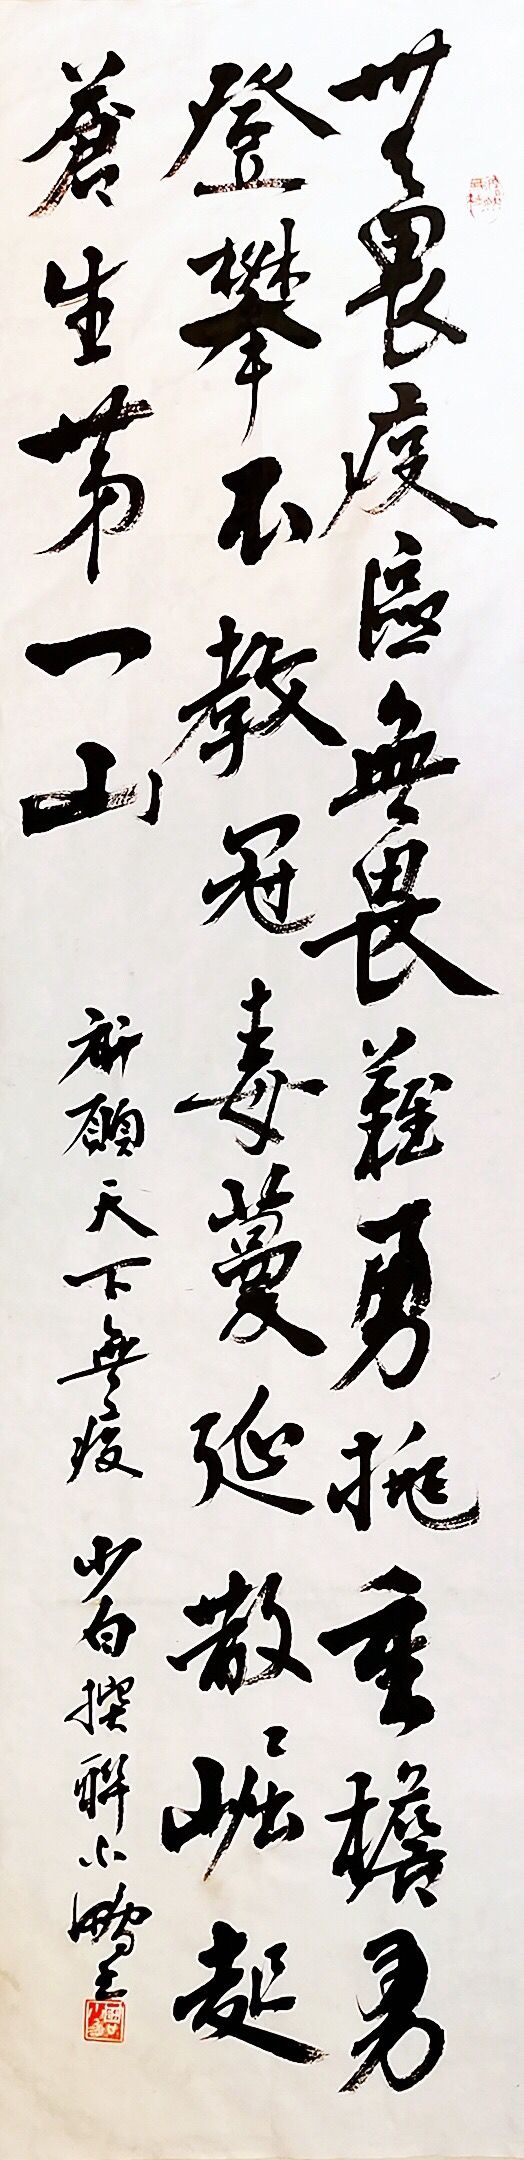 無畏疫區無畏難勇挑重擔勇
登攀不教冠毒蔓延散崛起
蒼生第一山
祈願天下無疫 少白撰聯小鵬